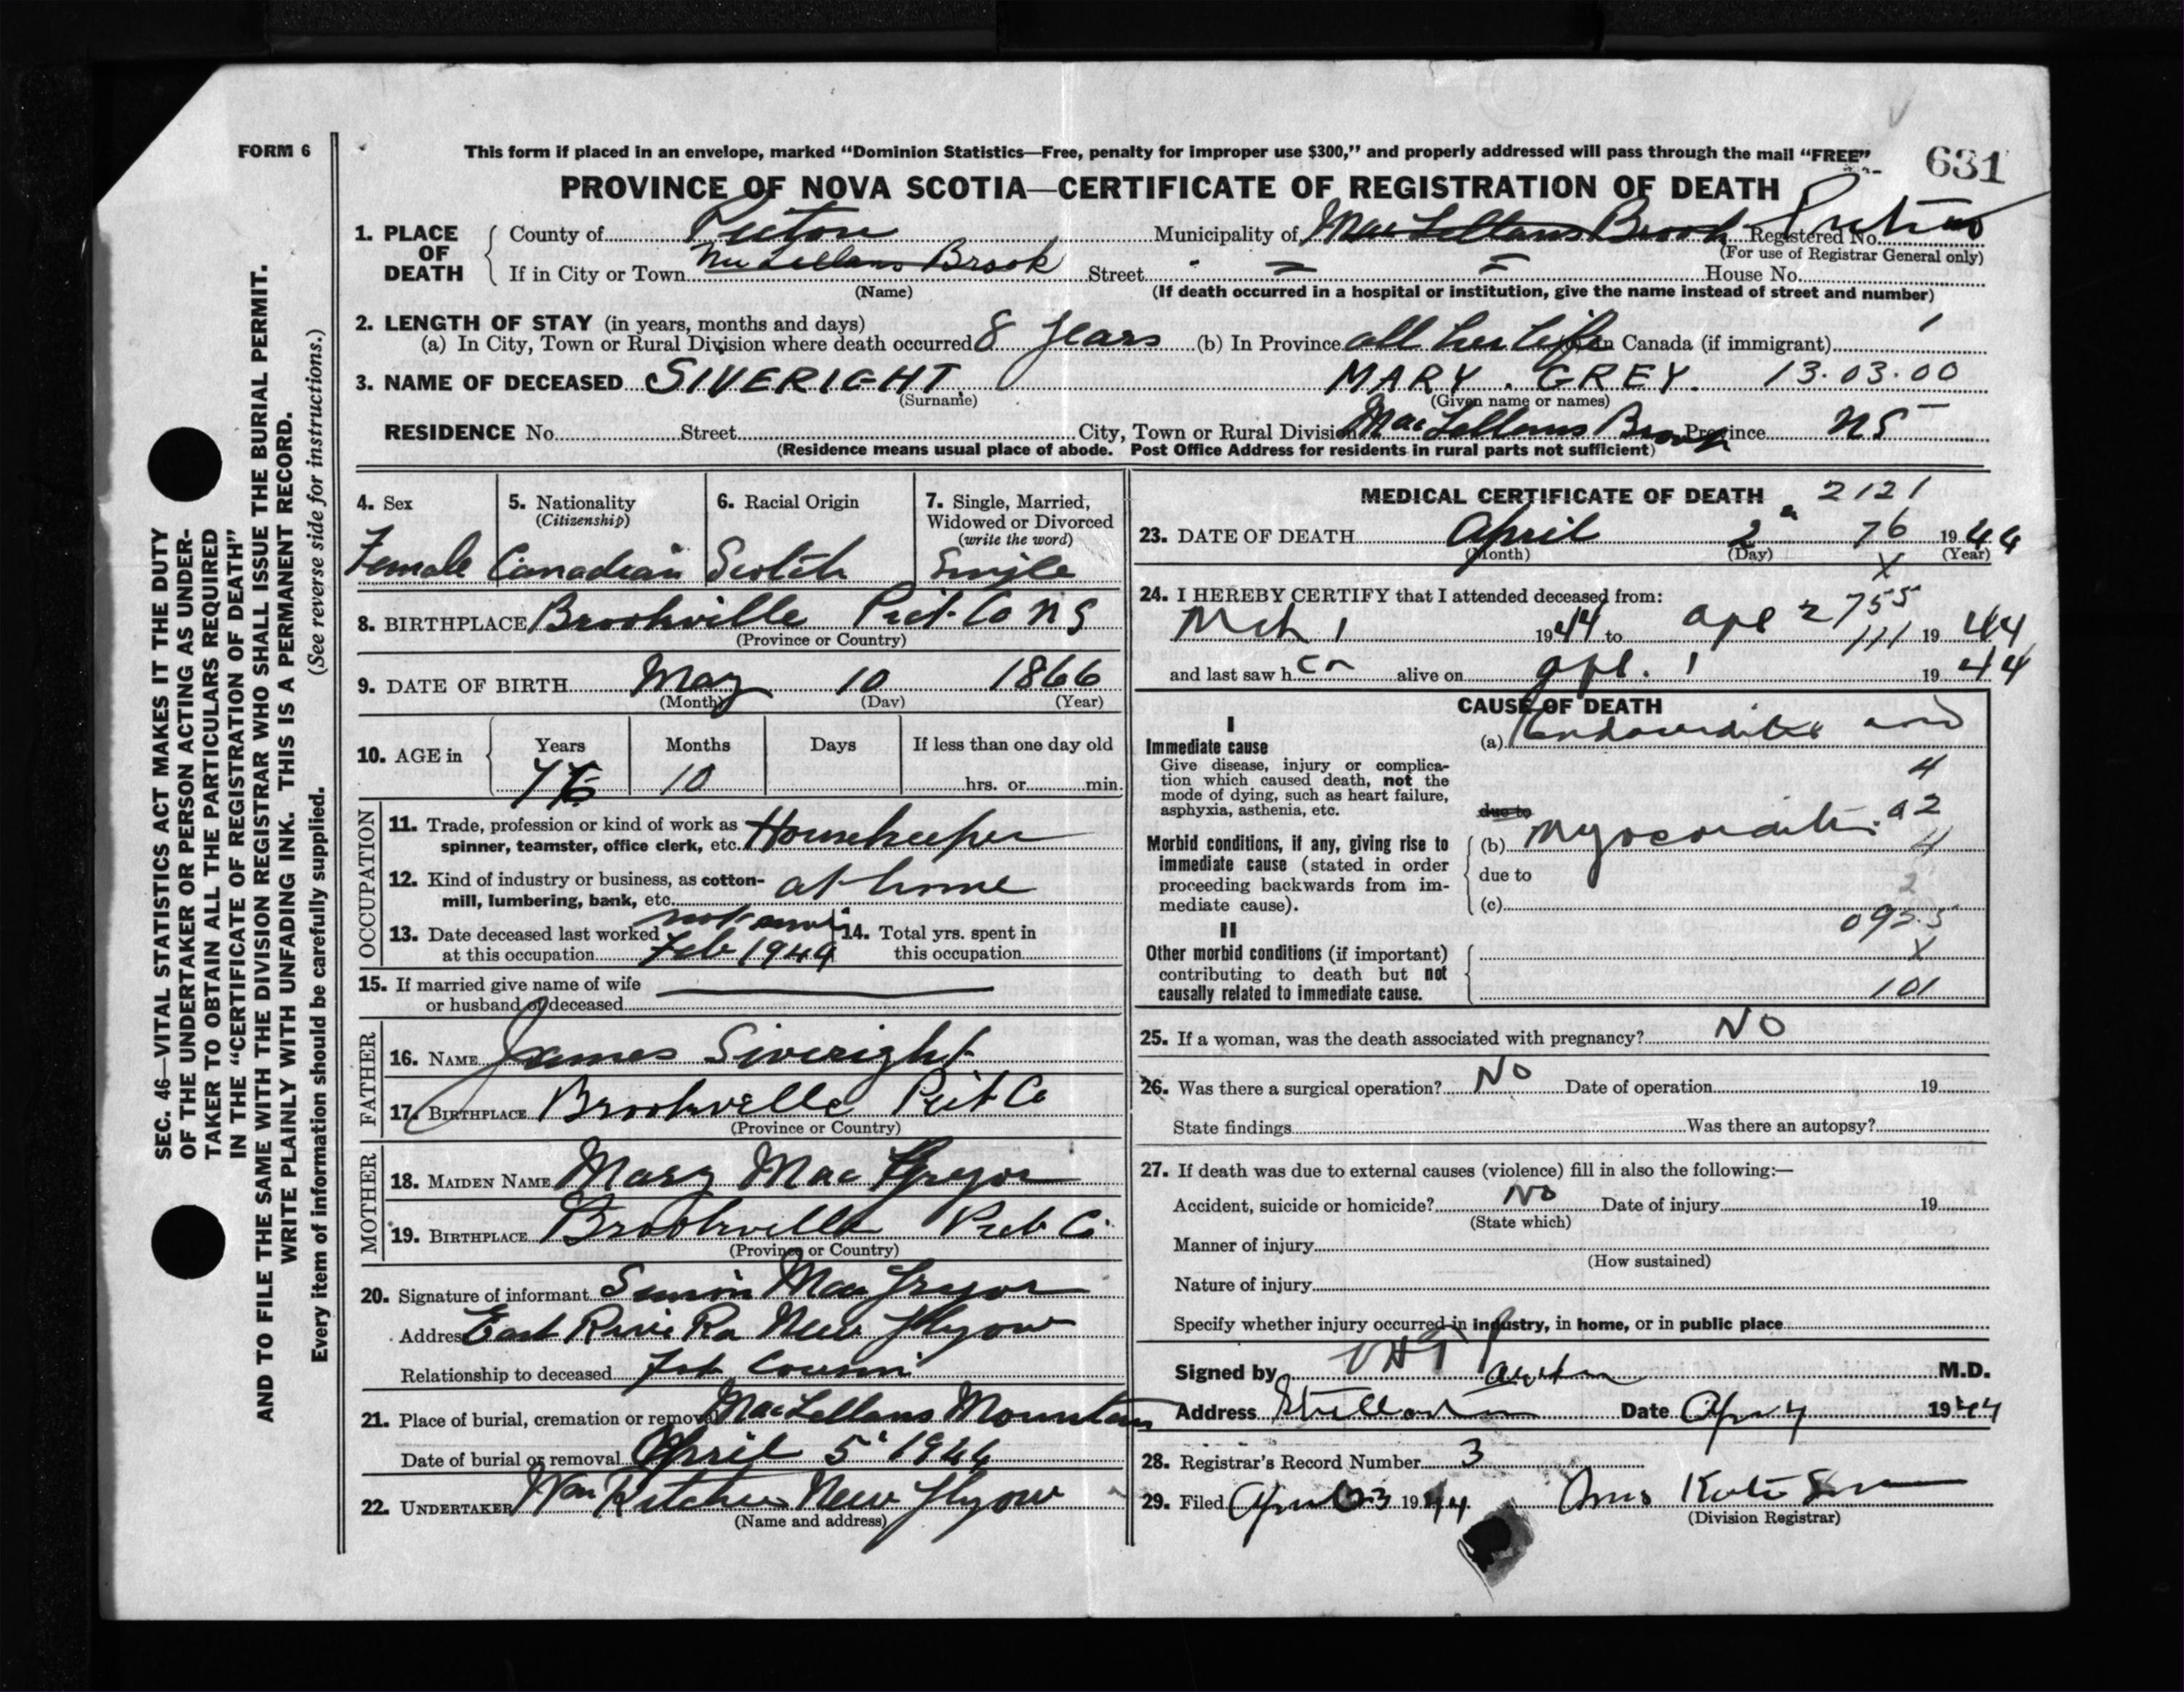 FORM 6
This form if placed in an envelope, marked “Dominion Statistics—Free, penalty for improper use $300,” and properly addressed will pass through the mail “FREE”
631
PROVINCE OF NOVA SCOTIA—CERTIFICATE OF REGISTRATION OF DEATH
1. PLACE OF DEATH
County of Pictou Municipality of MacLellans Brook Pictou Registered No.
(For use of Registrar General only)
If in City or Town McLellans Brook Street House No.
(Name) (If death occurred in a hospital or institution, give the name instead of street and number)
2. LENGTH OF STAY (in years, months and days)
(a) In City, Town or Rural Division where death occurred 8 years (b) In Province all her life In Canada (if immigrant)
3. NAME OF DECEASED SIVERIGHT MARY. GREY. 13.03.00
(Surname) (Given name or names)
RESIDENCE No. Street City, Town or Rural Division MacLellans Brook Province NS
(Residence means usual place of abode. Post Office Address for residents in rural parts not sufficient)
4. Sex
Female
5. Nationality
(Citizenship)
Canadian
6. Racial Origin
Scotch
7. Single, Married,
Widowed or Divorced
(write the word)
Single
8. BIRTHPLACE Brookville Pict. Co NS
(Province or Country)
9. DATE OF BIRTH May 10 1866
(Month) (Day) (Year)
10. AGE in Years Months Days If less than one day old
10 hrs. or min.
OCCUPATION
11. Trade, profession or kind of work as
spinner, teamster, office clerk, etc. Housekeeper
12. Kind of industry or business, as cotton-
mill, lumbering, bank, etc. at home
13. Date deceased last worked
at this occupation Feb 1944
14. Total yrs. spent in
this occupation
15. If married give name of wife
or husband of deceased
FATHER
16. NAME James Siveright
17. BIRTHPLACE Brookville Pict Co
(Province or Country)
MOTHER
18. MAIDEN NAME Mary MacGregor
19. BIRTHPLACE Brookville Pict Co
(Province or Country)
20. Signature of informant Simon MacGregor
Address East River Rd New Glasgow
Relationship to deceased 1st Cousin
21. Place of burial, cremation or removal MacLellans Mountain
Date of burial or removal April 5 1944
22. UNDERTAKER Wm New Glasgow
(Name and address)
MEDICAL CERTIFICATE OF DEATH 2121
23. DATE OF DEATH April 2 76 1944
(Month) (Day) (Year)
X
24. I HEREBY CERTIFY that I attended deceased from:
755
Mch 1 1944 to apl 2 111 1944
and last saw her alive on apl. 1 1944
CAUSE OF DEATH
I
Immediate cause
Give disease, injury or complica-
tion which caused death, not the
mode of dying, such as heart failure,
asphyxia, asthenia, etc.
(a) Endocarditis and
4
due to
92
Morbid conditions, if any, giving rise to
immediate cause (stated in order
proceeding backwards from im-
mediate cause).
(b) Myocarditis.
4
due to
2
(c)
II
Other morbid conditions (if important)
contributing to death but not
causally related to immediate cause.
X
101
25. If a woman, was the death associated with pregnancy? NO
26. Was there a surgical operation? No Date of operation 19
State findings Was there an autopsy?
27. If death was due to external causes (violence) fill in also the following:—
Accident, suicide or homicide? No Date of injury 19
(State which)
Manner of injury
(How sustained)
Nature of injury
Specify whether injury occurred in industry, in home, or in public place
Signed by M.D.
Address Stellarton Date Apr 4 1944
28. Registrar's Record Number 3
29. Filed April 1944
(Division Registrar)
SEC. 46—VITAL STATISTICS ACT MAKES IT THE DUTY
OF THE UNDERTAKER OR PERSON ACTING AS UNDER-
TAKER TO OBTAIN ALL THE PARTICULARS REQUIRED
IN THE “CERTIFICATE OF REGISTRATION OF DEATH”
AND TO FILE THE SAME WITH THE DIVISION REGISTRAR WHO SHALL ISSUE THE BURIAL PERMIT.
WRITE PLAINLY WITH UNFADING INK. THIS IS A PERMANENT RECORD.
Every item of information should be carefully supplied. (See reverse side for instructions.)